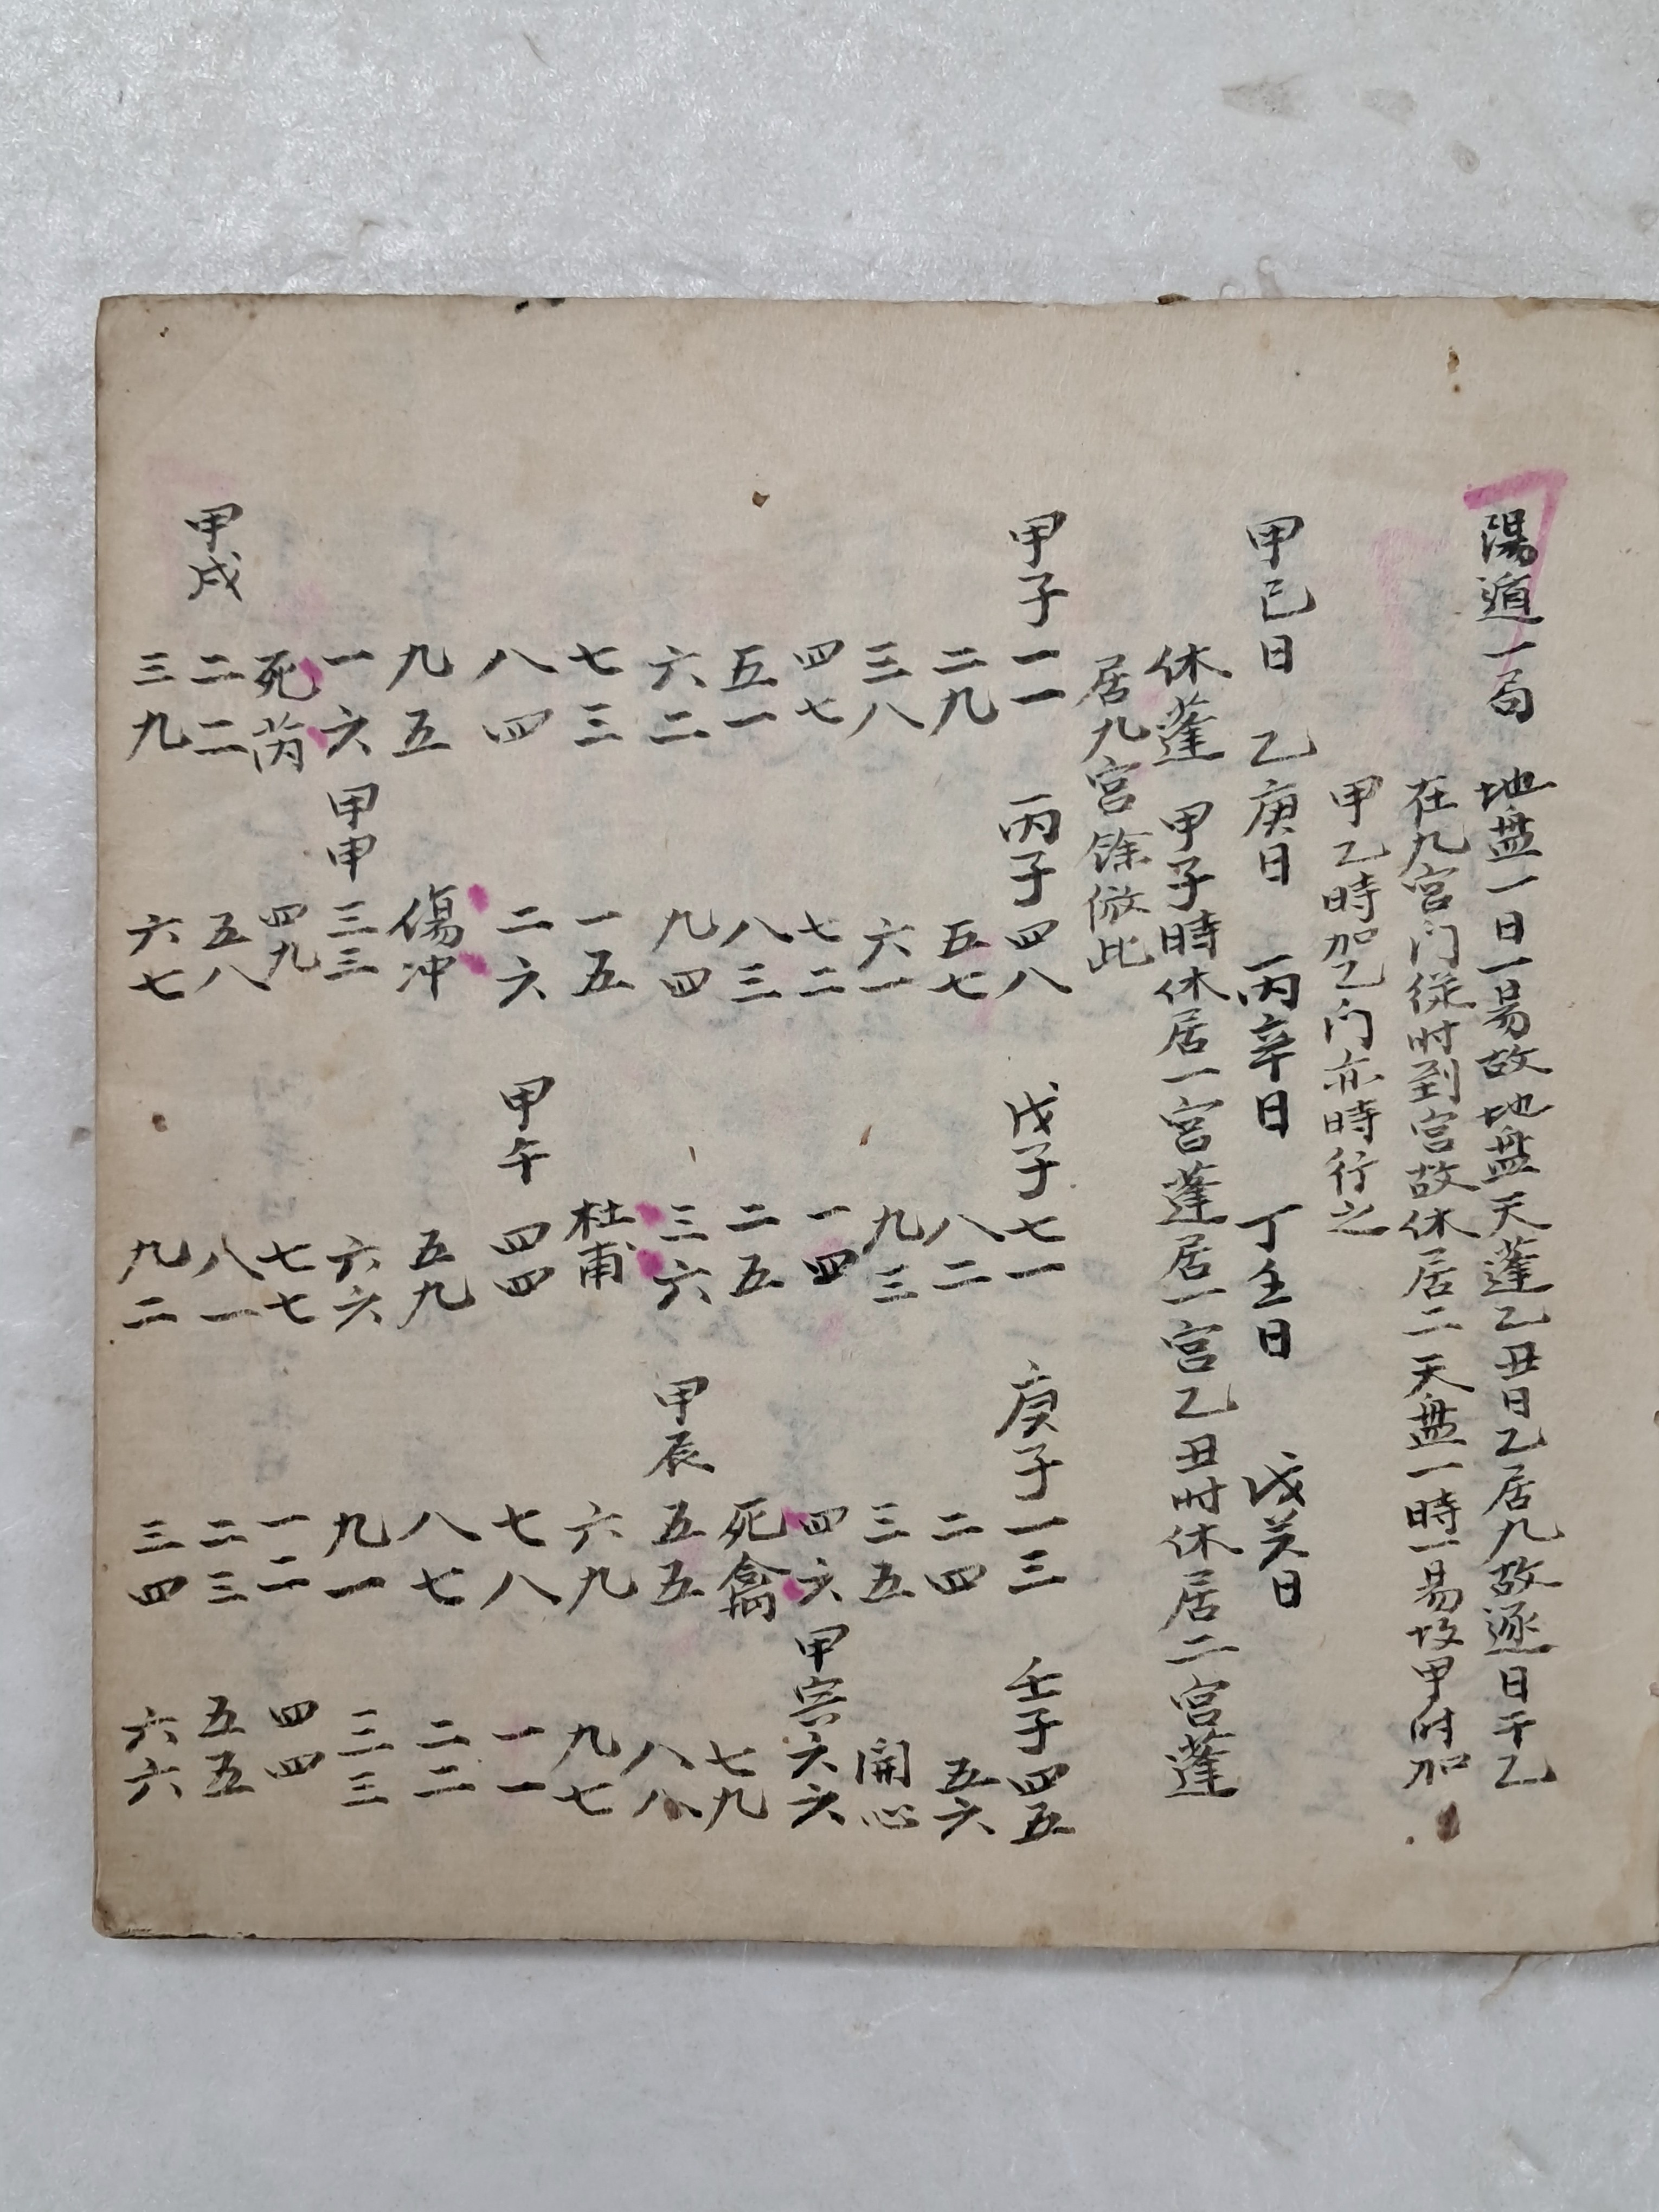 陽遁一局 地盘一日一易故地盘天蓬乙丑日乙居九故逐日干乙
在九宫门從时到宫故休居二天盘一時一易故甲时加
甲乙時加乙门亦時行之
甲己日 乙庚日 丙辛日 丁壬日 戊癸日
休蓬 甲子時休居一宫蓬居一宫乙丑时休居二宫蓬
居九宫馀倣此
甲子一一 丙子四八 戊子七一 庚子一三 壬子四五
二九 五七 八二 二四 五六
三八 六一 九三 三五 開心
四七 七二 一四 四六 甲寅六六
五一 八三 二五 死禽 七九
六二 九四 三六 甲辰五五 八八
七三 一五 杜甫 六九 九七
八四 二六 甲午四四 七八 一一
九五 傷冲 五九 八七 二二
一六 甲申三三 六六 九一 三三
死芮 四九 七七 一二 四四
甲戌二二 五八 八一 二三 五五
三九 六七 九二 三四 六六